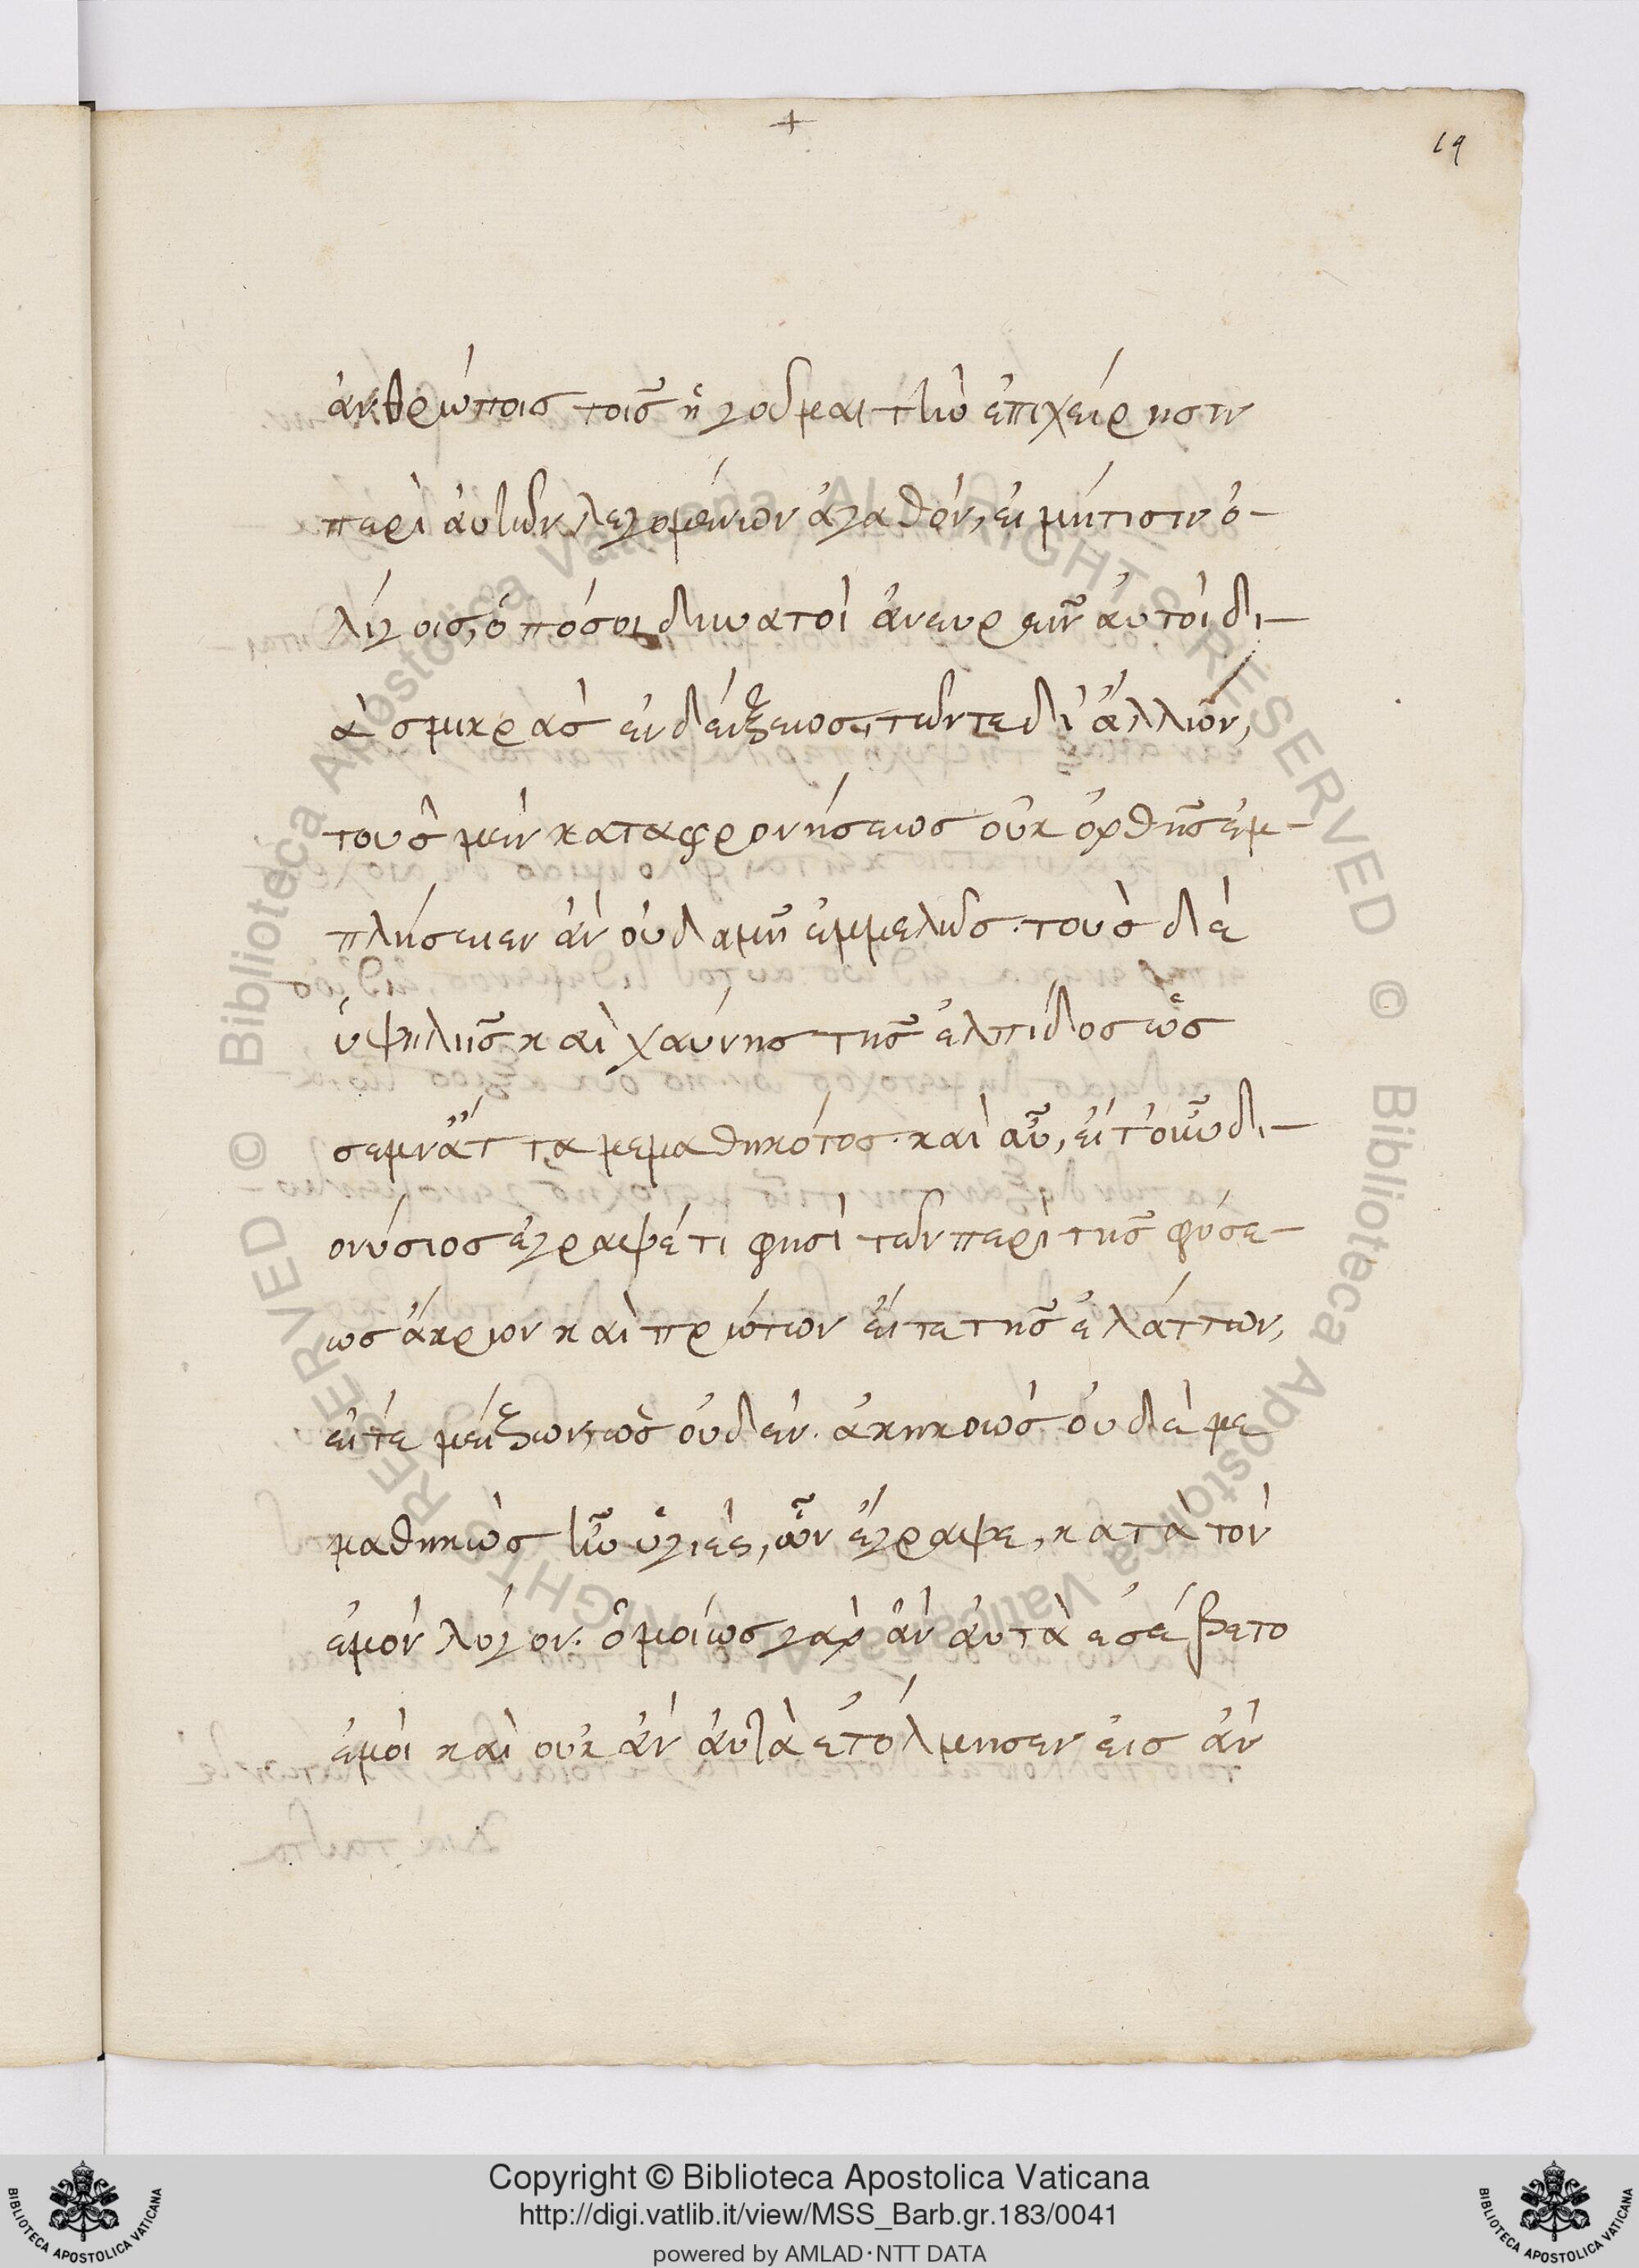 +
19
ἀνθρώποις τοῖς ἡγοῦμαι τὴν ἐπιχείρησιν
περὶ ἀυτῶν λεγομένων ἀγαθὸν, εἰ μήτισιν ὀ-
λίγοις, ὁπόσοι δυνατοὶ ἀνευρεῖν ἀυτοὶ δι-
ὰ σμικρᾶς ἐνδείξεως, τῶντε δὴ ἄλλων,
τοὺς μὲν καταφρονήσεως οὐκ ὀρθῆς ἐμ-
πλήσειεν ἂν οὐδαμῆ ἐμμελῶς· τοὺς δὲ
ὑψηλῆς καὶ χαύνης τῆς ἐλπίδος ὡς
σέμν' ἄττα μεμαθηκότος· καὶ αὖ, εἴτ' οὖν δι-
ονύσιος ἔγραψέ τι φησὶ τῶν περὶ τῆς φύσε-
ως ἄκρων καὶ πρώτων εἴτε τῆς ἐλάττων,
εἴτε μείζων, ὡς οὐδὲν· ἀκηκοὼς οὐδὲ με
μαθηκὼς ἦν ὑγιὲς, ὧν ἔγραψε, κατὰ τὸν
ἐμὸν λόγον· ὁμοίως γὰρ ἂν ἀυτὰ ἐσέβετο
ἐμοὶ καὶ οὐκ ἂν ἀυτὰ ἐτόλμησεν εἰς ἀν
Copyright © Biblioteca Apostolica Vaticana
http://digi.vatlib.it/view/MSS_Barb.gr.183/0041
powered by AMLAD·NTT DATA